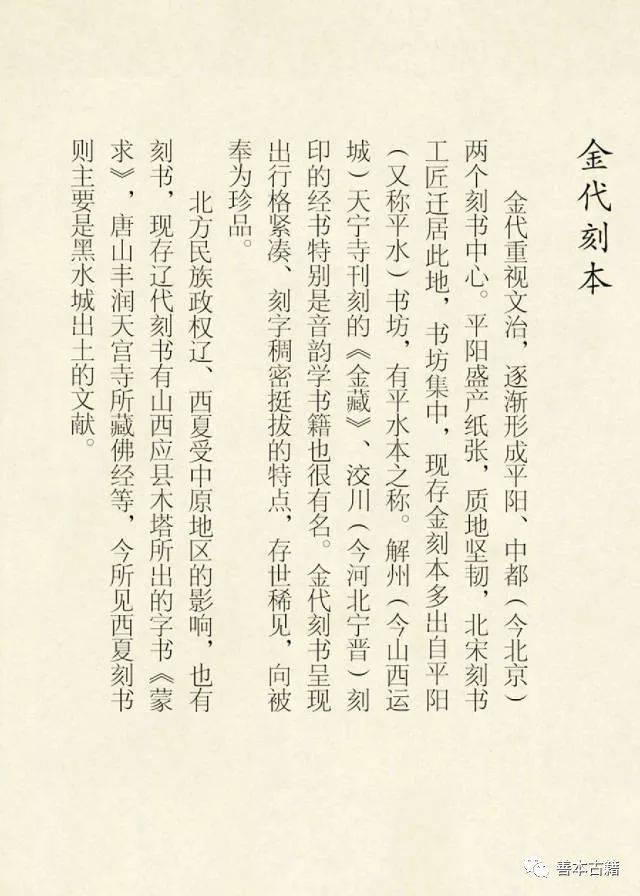 金代刻本
金代重视文治，逐渐形成平阳、中都（今北京）
两个刻书中心。平阳盛产纸张，质地坚韧，北宋刻书
工匠迁居此地，书坊集中，现存金刻本多出自平阳
（又称平水）书坊，有平水本之称。解州（今山西运
城）天宁寺刊刻的《金藏》、洨川（今河北宁晋）刻
印的经书特别是音韵学书籍也很有名。金代刻书呈现
出行格紧凑、刻字稠密挺拔的特点，存世稀见，向被
奉为珍品。
北方民族政权辽、西夏受中原地区的影响，也有
刻书，现存辽代刻书有山西应县木塔所出的字书《蒙
求》，唐山丰润天宫寺所藏佛经等，今所见西夏刻书
则主要是黑水城出土的文献。
善本古籍